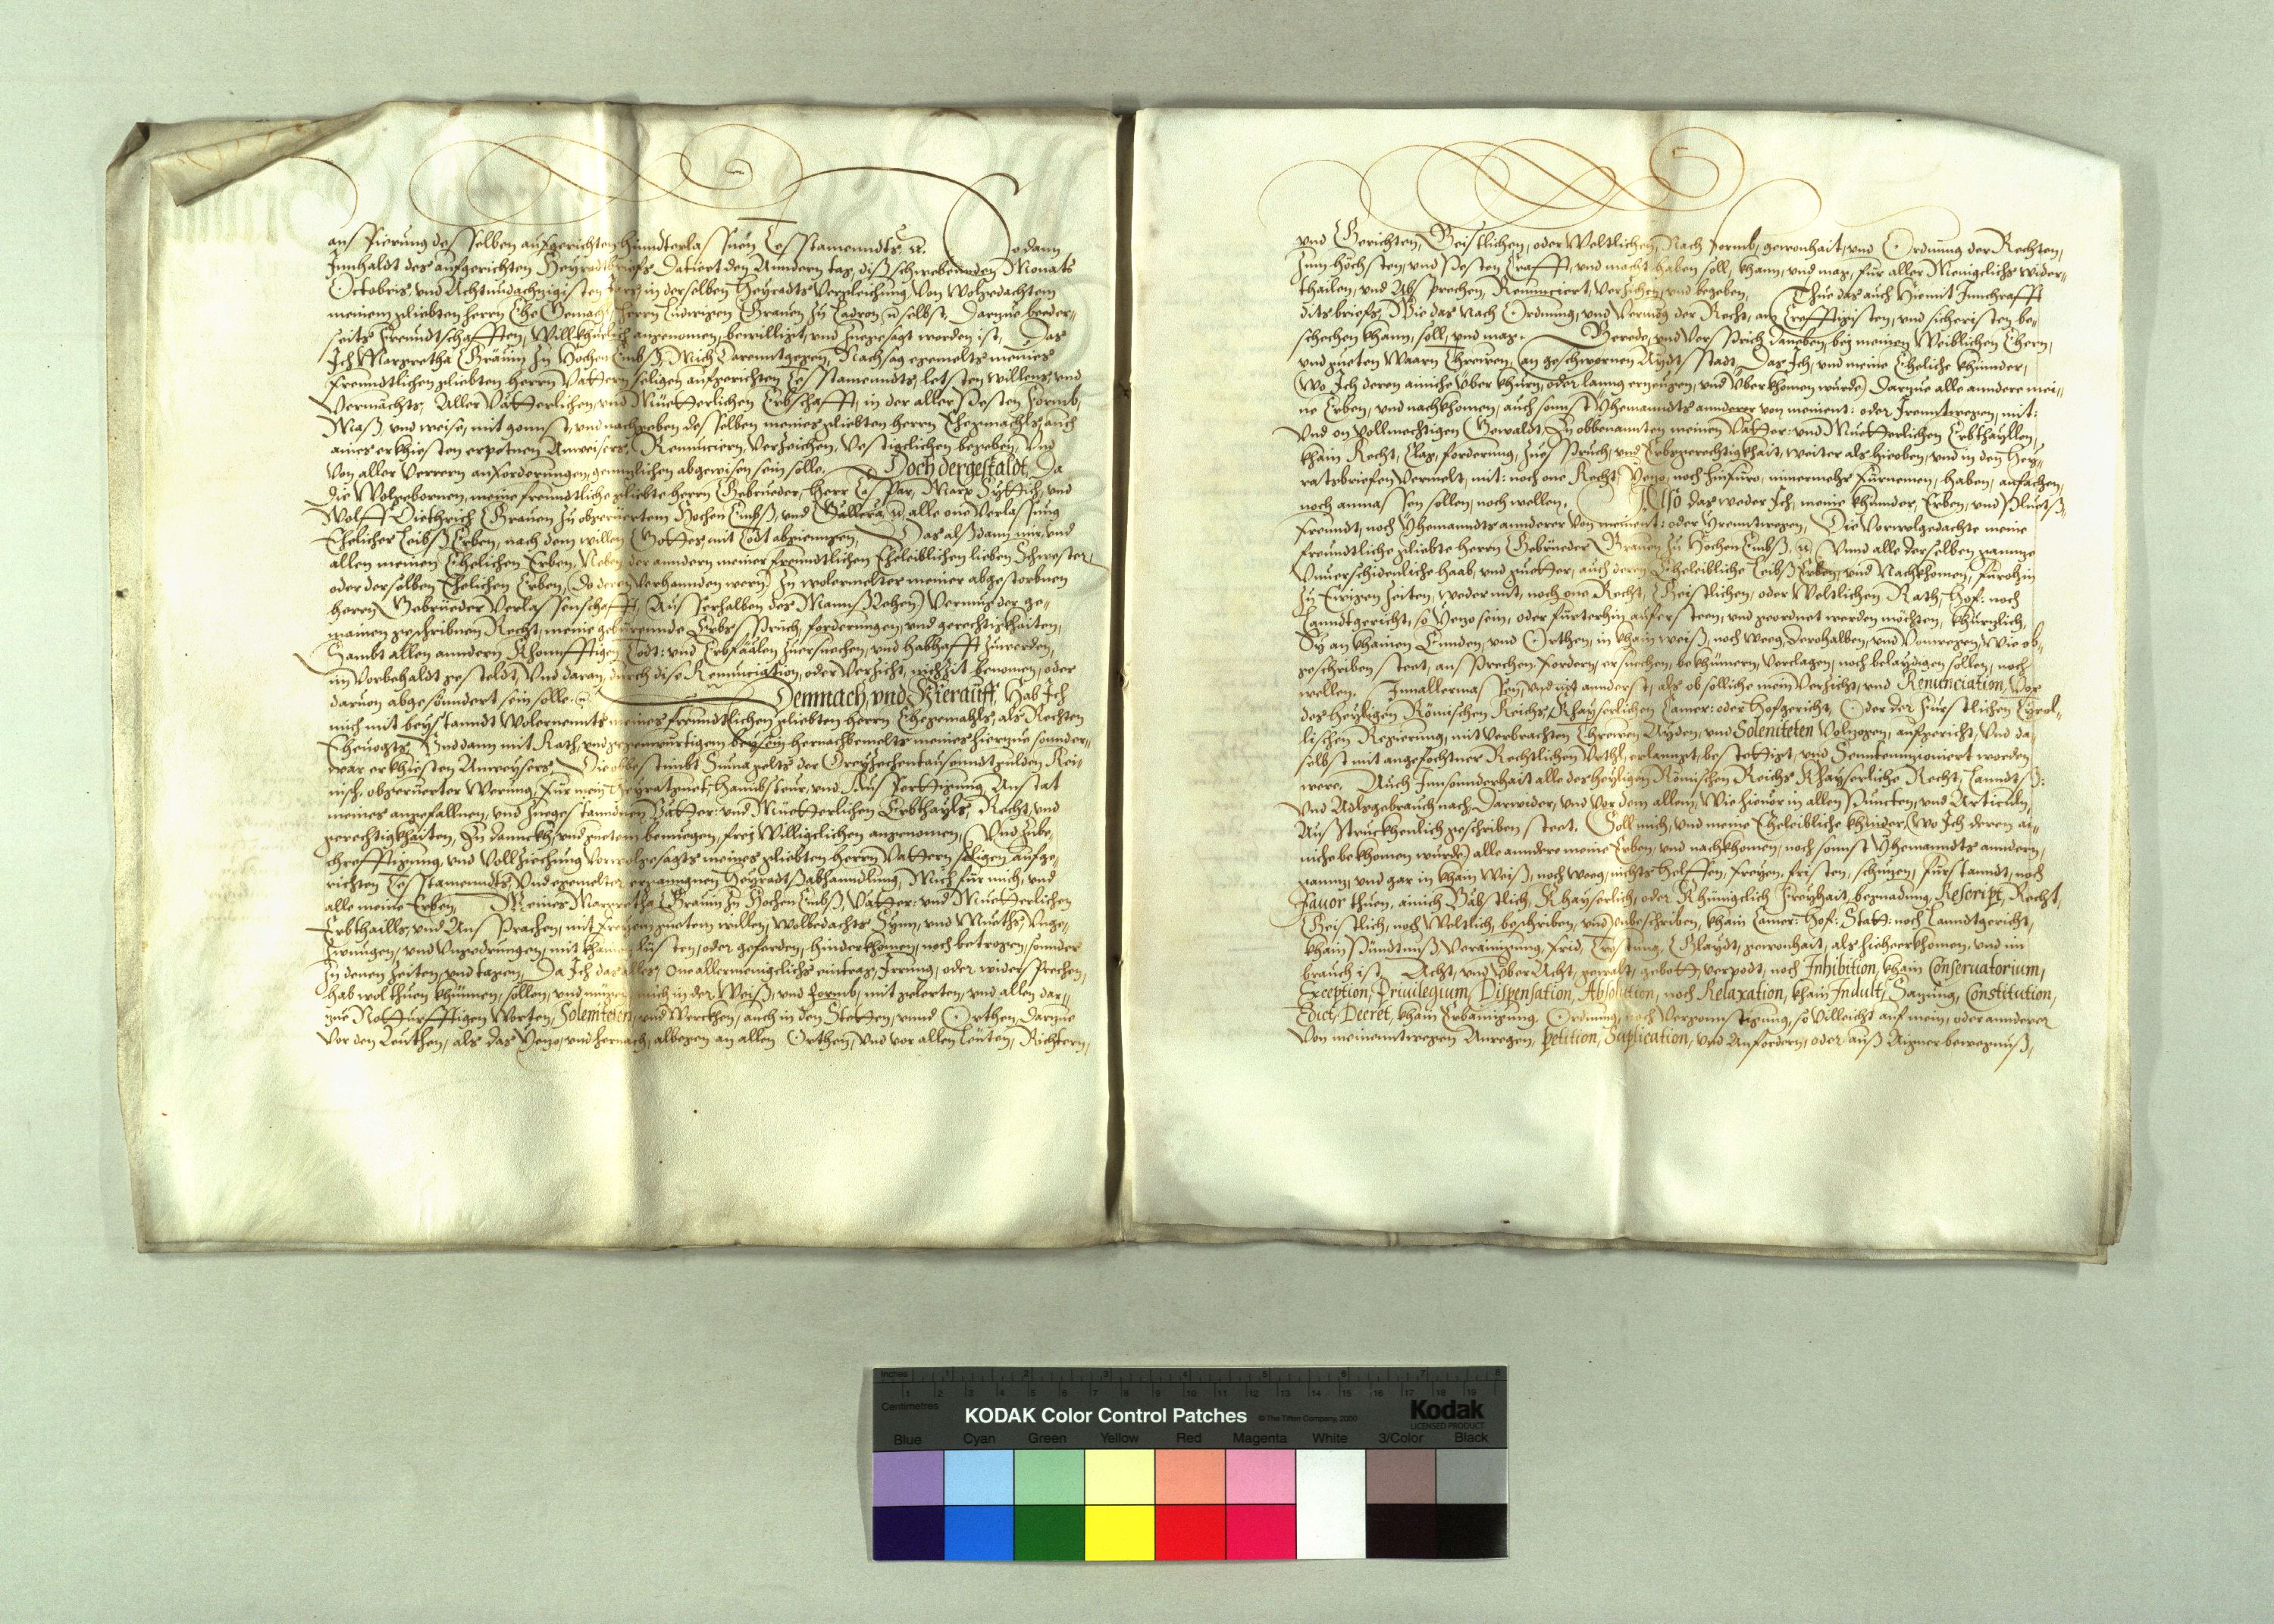 aus fierung desselben aufgerichten hinderlassnen Testamenndts, rc. So dann
Innhaldt des aufgerichten Heyradtbriefs, Datiert den Anndern tag, diß schwebennden Monats
Octobris, und Achtundachzigisten Jars, in derselben Heyradts vergleichung, von Wolgedachtem
meinem geliebten herrn Ehe Gemachl, herrn Ludwigen Graven zu Ladron, rc. selbst, Darzue beeder-
seits Freundtschafften, Willkhürlich angenomen, bewilliget, und zuegesagt worden ist, Das
Ich Margretha Grävin zu Hochen Embß, Mich Darenntgegen, Nach sag egemelts meines
freundtlichen geliebten herrn Vattern seligen aufgerichten Testamenndts, letsten willens, und
Vermächts, Aller Vätterlichen, und Müetterlichen Erbschafft, in der aller Pesten Formb,
Maß, und weise, mit gonnst, und nachgeben desselben meines geliebten herrn Ehegmachls, auch
aines erkhiesten erpetnen Anweisers, Renuncieren, Verzeichen, Vestigclichen begeben, und
von aller verrern anforderungen, genntzlichen abgewisen sein solle. Doch dergestaldt, Da
die Wolgebornen, meine freundtliche geliebte herrn Gebrüeder, herr Caspar, Marx Syttich, und
Wolff Diethrich Graven zu obgerüertem Hochen Embß, und Gallera, rc. alle one Verlassung
Ehelicher Leibß Erben, nach dem willen Gottes, mit Todt abgiengen, Das alßdann mir, und
allen meinen Ehelichen Erben, Neben der anndern meiner freundtlichen Eheleiblichen lieben Schwester,
oder derselben Ehelichen Erben, (do deren verhannden wern) zu wolermelter meiner abgestorbnen
herrn Gebrüeder Verlassenschafft, (Ausserhalben des Mannß Lehen) Vermüg der ge-
mainen geschribnen Recht, meine gebürennde Erbs Sprüch, forderungen, und gerechtigkhaiten,
Sambt allen anndern Khonnfftigen Todt: und Erbfäälen zuersuechen, und habhafft zuwerden,
im vorbehaldt gesteldt, Und daran, durch dise Renunciation, oder Verzicht, nichzit benomen, oder
darvon abgesöndert sein solle. Demnach, und Hierauff, Hab Ich
mich mit beystanndt Wolernennts meines freundtlichen geliebten herrn Ehegemahls, als Rechten
Ehevogts, Und dann mit Rath, und gegenwürtigem beysein, hernachbemelts meines hierzue sonnder-
bar erkhiesten Anweysers, Die obbestimbt Suma gelts der Dreyzechentausenndt gulden Rei-
nisch, obgerüerter Werung, für mein Heyratguet, Haimbsteur, und Ausfertigung, Anstat
meines angefallnen, und zuegestanndnen Vätter: und Müetterlichen Erbthayls, Recht, und
gerechtigkhaiten, Zu dannckh, und guetem beniegen, frey Willigclichen angenomen, Und zube-
chrefftigung, und Vollziechung vorwolgesagts meines geliebten herrn Vattern seligen aufge-
richten Testamenndts, Und egemelter erganngnen Heyradtßabhanndlung, Mich für mich, und
alle meine Erben Meines Margretha Grävin zu Hochen Embß, Vätter: und Müetterlichen
Erbthaills, und Ansprachen, mit Freyem guetem willen, Wolbedachts Synn, und Mueths, Unge-
zwungen, und Ungedrungen, mit khainen Lüsten, oder geferden, hinderkhomen, noch betrogen, sonnder
zu denen zeiten, und tagen, Da Ich das alles, One allermenigclichs eintrag, Irrung, oder widersprechen,
hab wol thuen khünnen, sollen, und mügen, auch in der Weiß, und Formb, mit gelerten, und allen dar-
zue Notturfftigen Worten, Solemteten, und Werckhen, auch in den Stetten, unnd Orthen, darzue
vor den Leuthen, als das Yezo, und hernach, albegen an allen Orthen, Und vor allen Leuten, Richtern,
und Gerichten, Geistlichen, oder Weltlichen, Nach Formb, gewonhait, und Ordnung der Rechten,
zum höchsten, und Pesten Crafft, und macht haben soll, khann, und mag, für aller Menigclichs wider-
thailen, und Absprechen, Renunciert, Verzichen, und begeben, Thue das auch hiemit Innchrafft
dits briefs, Wie das nach Ordnung, und Vermüg der Recht, am Crefftigisten, und sicheristen be-
schechen khann, soll, und mag. Gerede, und Versprich daneben, bey meinen Weiblichen Ehern,
und gueten Waarn Threwen, (an geschwornen Aydts stadt) Das Ich, und meine Eheliche khinnder,
(Wo Ich deren ainiche über khurtz, oder lanng erzeugen, und Überkhomen wurde) Darzue alle anndere mei-
ne Erben, und nachkhomen, auch sonnst Yhemanndts annderer von meinent: oder Irenntwegen, mit:
Und on vollmechtigen Gewaldt, zu obbenannten meinen Vätter: und Müetterlichen Erbthayllen,
khain Recht, Clag, forderung, zue Spruch, und Erbsgerechtigkhait, weiter als hieoben, und in den Hey-
ratsbriefen Vermelt, mit: noch one Recht, Yezo, noch hinfüro, nimermehr fürnemen, haben, anfachen,
noch anmassen sollen, noch wellen. Also das weder Ich, meine khinnder, Erben, und Pluetß-
Freundt, noch Yhemanndts annderer von meinent: oder Yrenntwegen, Die Vorwolgedachte meine
freundtliche geliebte herrn Gebrüeder Graven zu Hochen Embß, rc. Unnd alle derselben gannze
Unverschidenliche haab, und guetter, auch deren Eheleibliche Leibß Erben, und Nachkhomen, fürohin
zu Ewigen zeiten, weder mit, noch one Recht, Geistlichen, oder Weltlichen Rath, Hof: noch
Lanndtgericht, so Yezo sein, oder fürterhin aufersteen, und geordnet werden möchten, khürzlich,
Sy an khainen Ennden, und Orthen, in khain weiß, noch weeg, derohalben, und Vonwegen, Wie ob-
geschriben steet, ansprechen, fordern, ersuechen, bekhümern, verclagen, noch belaydigen sollen, noch
wellen. Innallermassen, und nit annderst, als ob solliche mein Verzicht, und Renunciation, Vor
des heyligen Römischen Reichs, Khayserlichen Camer: oder Hofgericht, Oder der Fürstlichen Tyrol-
lischen Regierung, mit verbrachten Threwen Ayden, und Soleniteten Volzogen, aufgericht, Und da-
selbst mit angefochtner Rechtlichen Urthl, erlanngt, bestettigt, und Senntennzioniert worden
were. Auch Innsonnderhait alle des heyligen Römischen Reichs Khayserliche Recht, Lanndtß:
Und Adlsgebrauch nach, Darwider, und vor dem allem, Wie hievor in allen Puncten, und Articuln,
Außtruckhenlich geschriben steet, Soll mich, und meine Eheleibliche khinder, (Wo Ich deren ai-
niche bekhomen wurde) alle anndere meine Erben, und nachkhomen, noch sonnst Yhemanndts anndern,
gannz, und gar in khain Weiß, noch weeg, nichts helffen, freyen, fristen, schüzen, fürstanndt, noch
Favor thuen, ainich Bäbstlich, Khayserlich, oder Khünigclich freyhait, begnadung, Rescript, Recht,
Geistlich, noch Weltlich, beschriben, und unbeschriben, khain Camer: Hof: Statt: noch Lanndtgericht,
khain Pündtnuß, Verainigung, frid, Trostung, Glaydt, gewonhait, als hieheerkhomen, und im
brauch ist, Acht, und Über Acht, gewalt, gebott, verpodt, noch Inhibition, khain Conservatorium,
Exception, Privilegium, Dispensation, Absolution, noch Relaxation, khain Indult, Sazung, Constitution,
Edict, Decret, khain Erbainigung, Ordnung, noch Vergonnstigung, so villeicht auf mein, oder annderer
von meinenntwegen Anregen, Petition, Suplication, und Anfordern, oder auß Aigner bewegnuß,
Inches
Centimetres
KODAK Color Control Patches © The Tiffen Company, 2000
Kodak
LICENSED PRODUCT
Blue Cyan Green Yellow Red Magenta White 3/Color Black